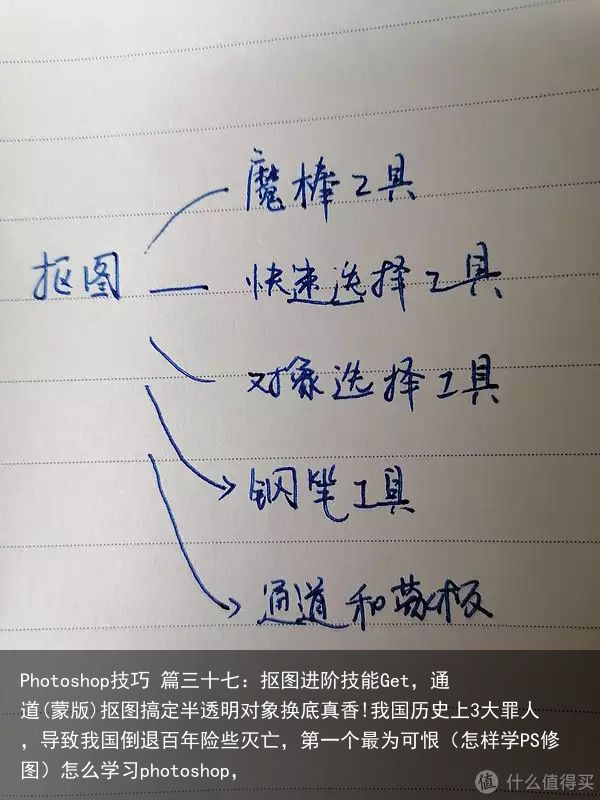 魔棒工具
抠图
快速选择工具
对象选择工具
钢笔工具
通道和蒙板
Photoshop技巧 篇三十七：抠图进阶技能Get，通
道(蒙版)抠图搞定半透明对象换底真香!我国历史上3大罪人
，导致我国倒退百年险些灭亡，第一个最为可恨（怎样学PS修
图）怎么学习photoshop，
值 什么值得买